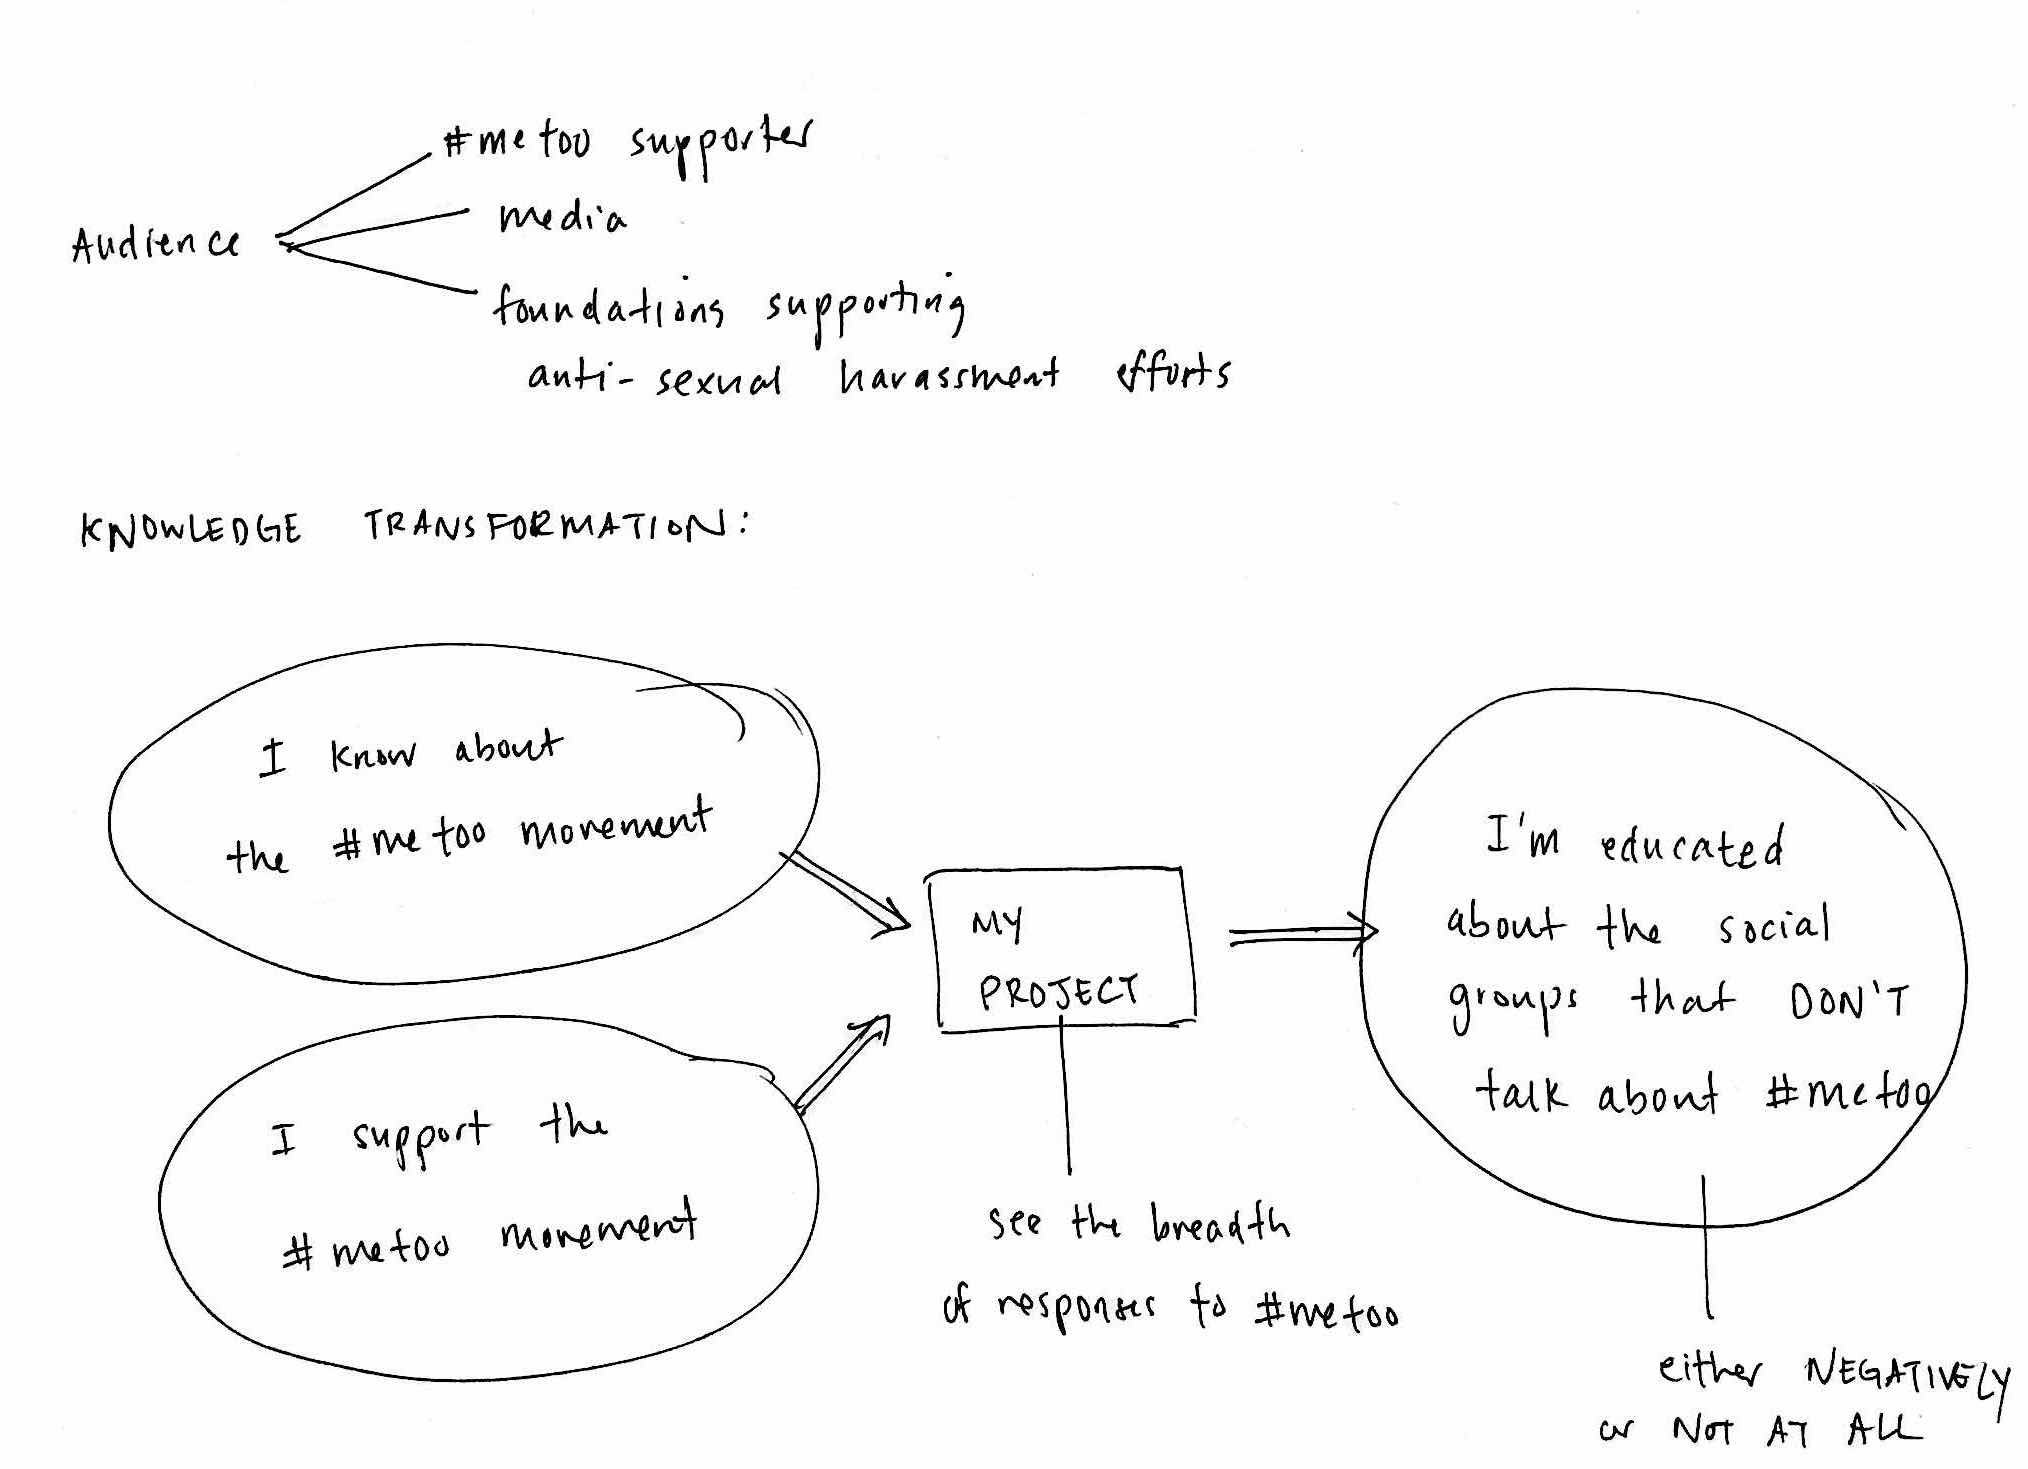 #metoo supporter
Audience
media
foundations supporting
anti-sexual harassment efforts
KNOWLEDGE TRANSFORMATION:
I know about
the #metoo movement
I support the
#metoo movement
MY
PROJECT
see the breadth
of responses to #metoo
I'm educated
about the social
groups that DON'T
talk about #metoo
either NEGATIVELY
or NOT AT ALL